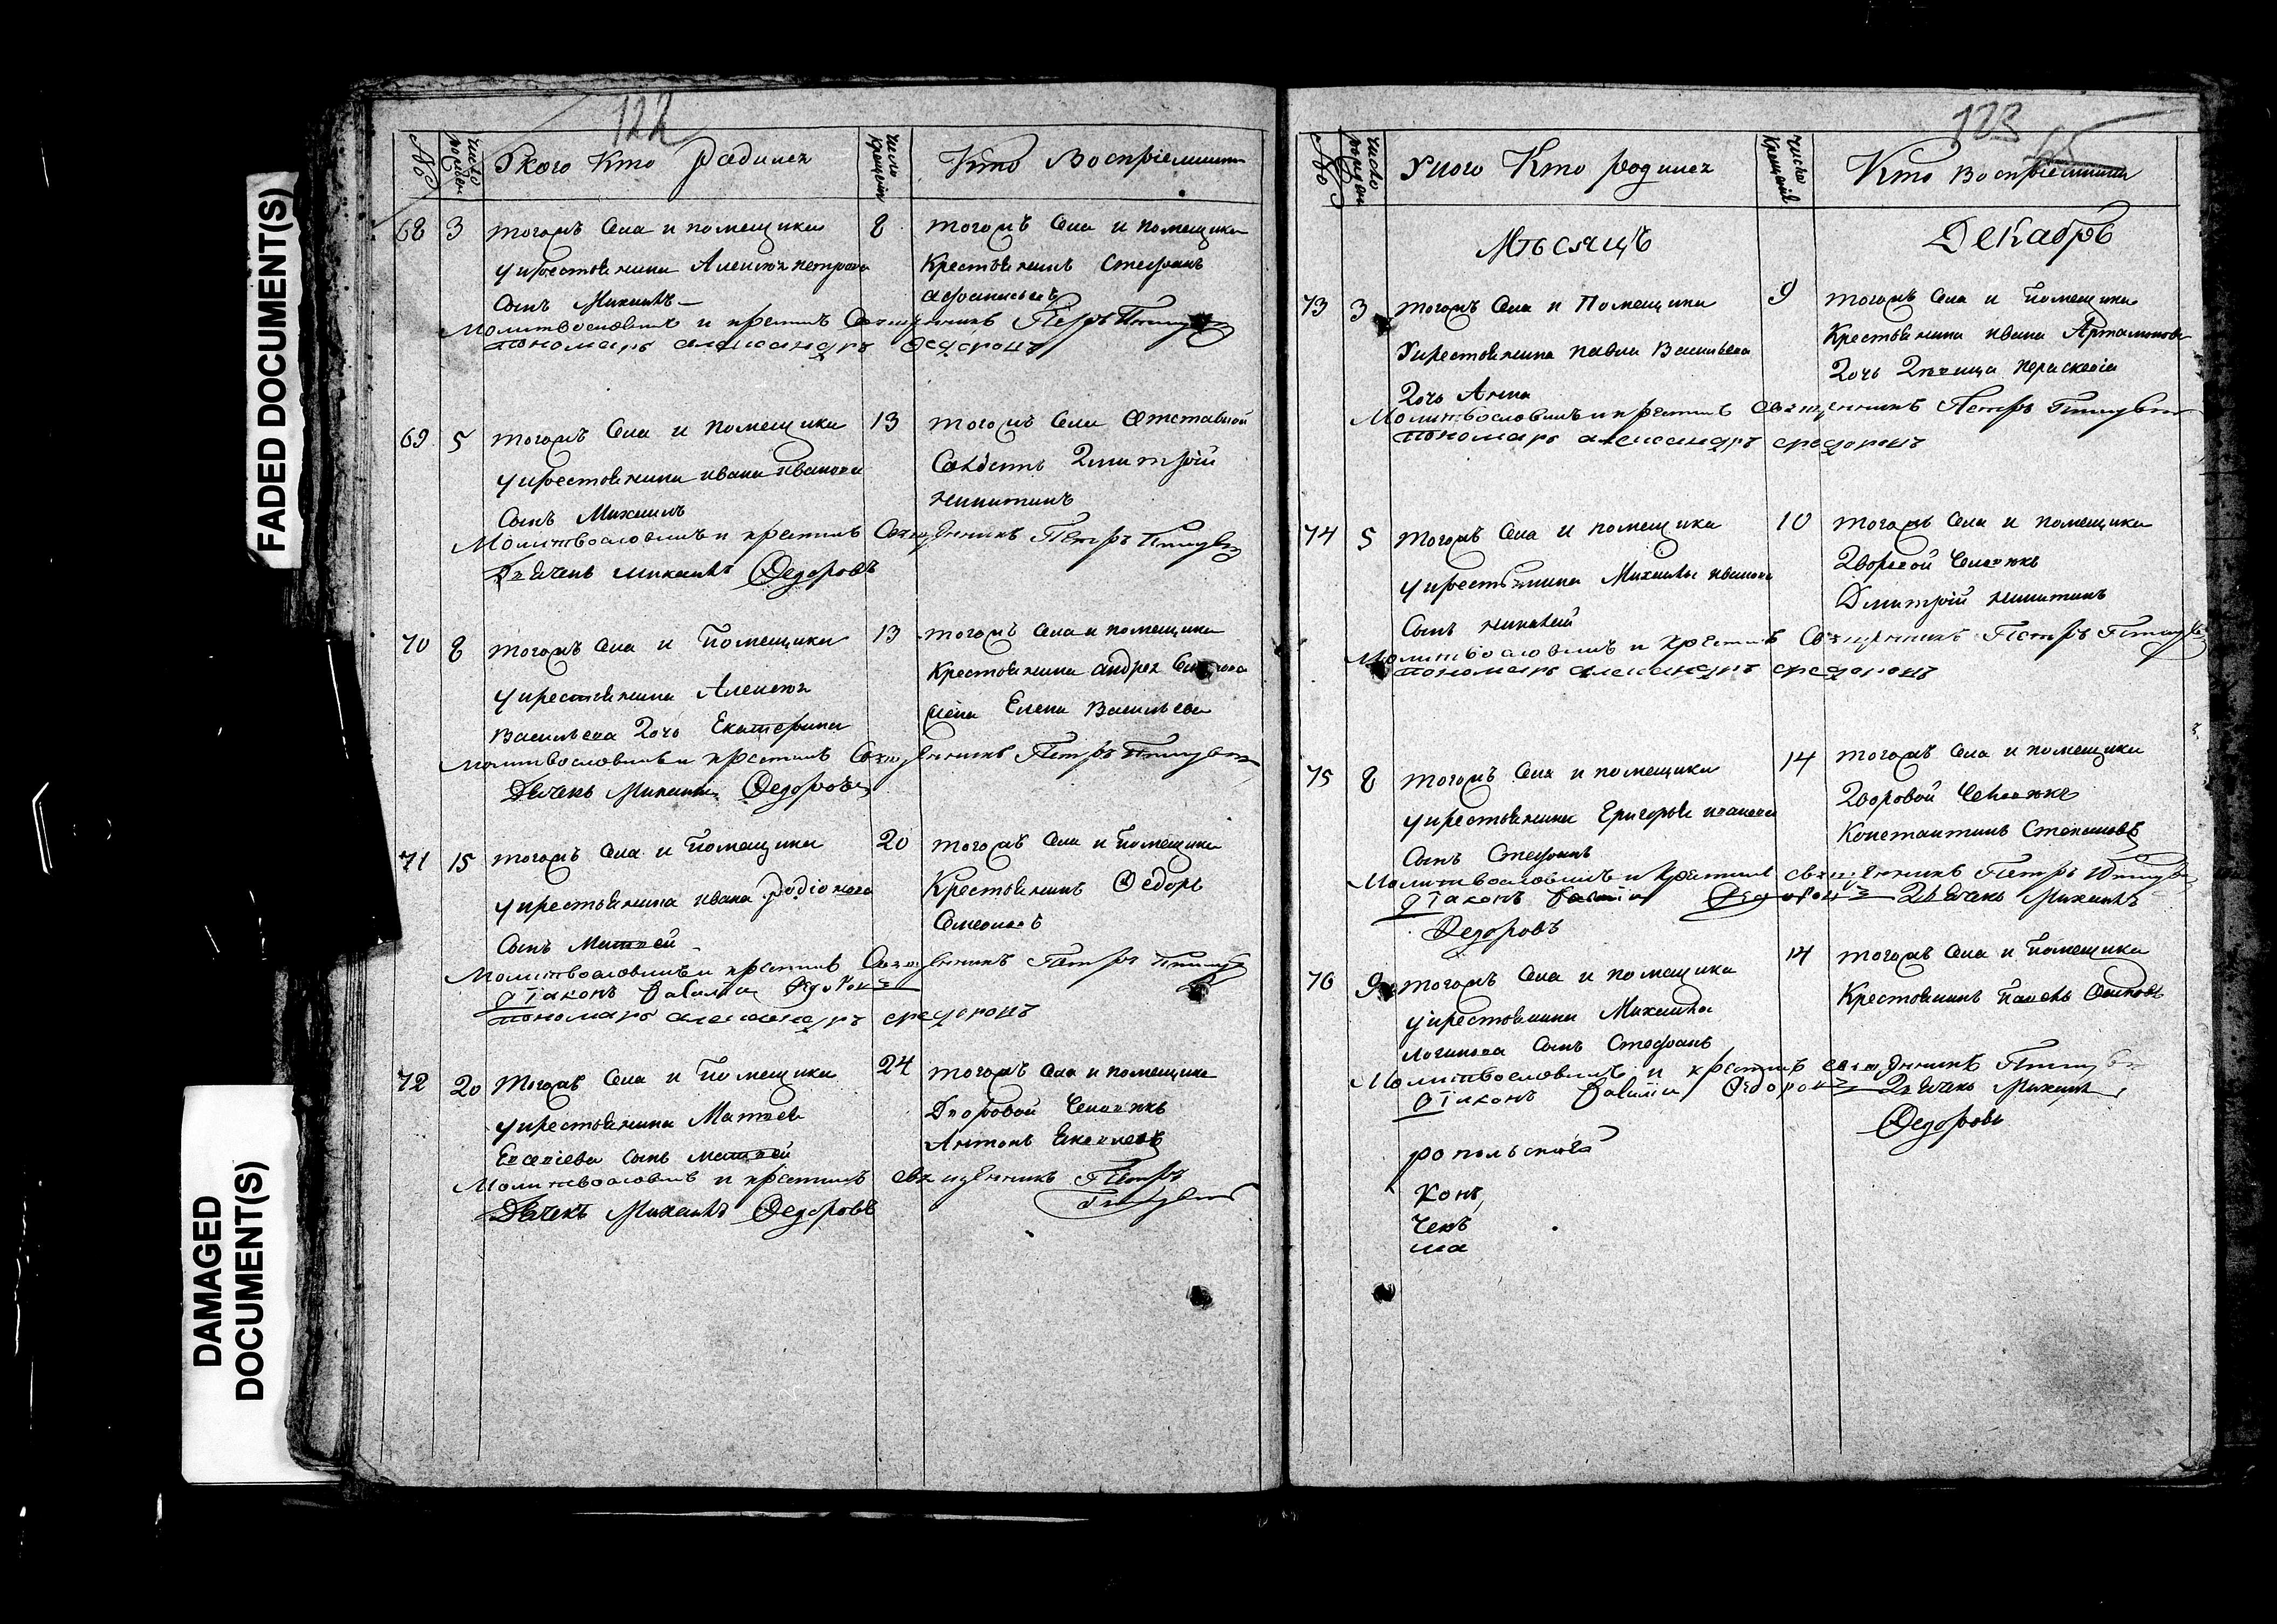 FADED DOCUMENT(S)
DAMAGED
DOCUMENT(S)
122
№
Число рожден
Укого Кто родился
Число крещения
Кто Восприемники
68 3 тогожъ Села и помещика
укрестьянина Алексея петрова
Сынъ Михаилъ
8 тогожъ Села и помещика
Крестьянинъ Стефанъ
Афонасьевъ
Молитвословилъ и крестилъ Священникъ Петръ
пономарь александръ федоровъ
69 5 тогожъ Села и помещика
укрестьянина ивана иванова
Сынъ Михаилъ
13 тогожъ Села Отставной
Салдатъ Дмитрий
никитинъ
Молитвословилъ и крестилъ Священникъ Петръ
Дьячекъ михаилъ Федоровъ
70 8 тогожъ Села и Помещика
укрестьянина Алексея
Васильева дочь Екатерина
13 тогожъ Села и помещика
Крестьянина андрея
жена Елена Васильева
Молитвословилъ и крестилъ Священникъ Петръ
Дьячекъ Михаилъ Федоровъ
71 15 тогожъ Села и Помещика
укрестьянина ивана родионова
Сынъ Матвей
20 тогожъ Села и Помещика
Крестьянинъ Федоръ
Семеновъ
Молитвословилъ и крестилъ Священникъ Петръ
Діаконъ Федоровъ
пономарь александръ федоровъ
72 20 тогожъ Села и Помещика
укрестьянина Матвея
Евсевіева сынъ матвей
24 тогожъ Села и помещика
Дворовой Человекъ
Антонъ
Молитвословилъ и крестилъ священникъ Петръ
Дьячекъ Михаилъ Федоровъ
123
65
№
Число рожден
Укого Кто родился
Число Крещения
Кто Восприемники
Мѣсяцъ Декабрь
73 3 тогожъ Села и Помещика
Укрестьянина павла Васильева
дочь Анна
9 тогожъ Села и Помещика
Крестьянина ивана Артамонова
дочь девица параскевіа
Молитвословилъ и крестилъ Священникъ Петръ
пономарь александръ федоровъ
74 5 тогожъ Села и помещика
укрестьянина Михаилы иванова
Сынъ николай
10 тогожъ Села и помещика
Дворовой Человекъ
Дмитрий никитинъ
Молитвословилъ и крестилъ Священникъ Петръ
пономарь александръ федоровъ
75 8 тогожъ Села и помещика
укрестьянина Григорья иванова
Сынъ Стефанъ
14 тогожъ Села и помещика
Дворовой Человекъ
Константинъ Степановъ
Молитвословилъ и крестилъ священникъ Петръ
Діаконъ Федоровъ Дьячекъ Михаилъ
Федоровъ
76 9 тогожъ Села и помещика
укрестьянина Михаила
логинова сынъ Стефанъ
14 тогожъ Села и Помещика
Крестьянинъ Павелъ Осиповъ
Молитвословилъ и крестилъ священникъ
Діаконъ Федоровъ Дьячекъ Михаилъ
Федоровъ
ропольской
конъ
чекъ
ма